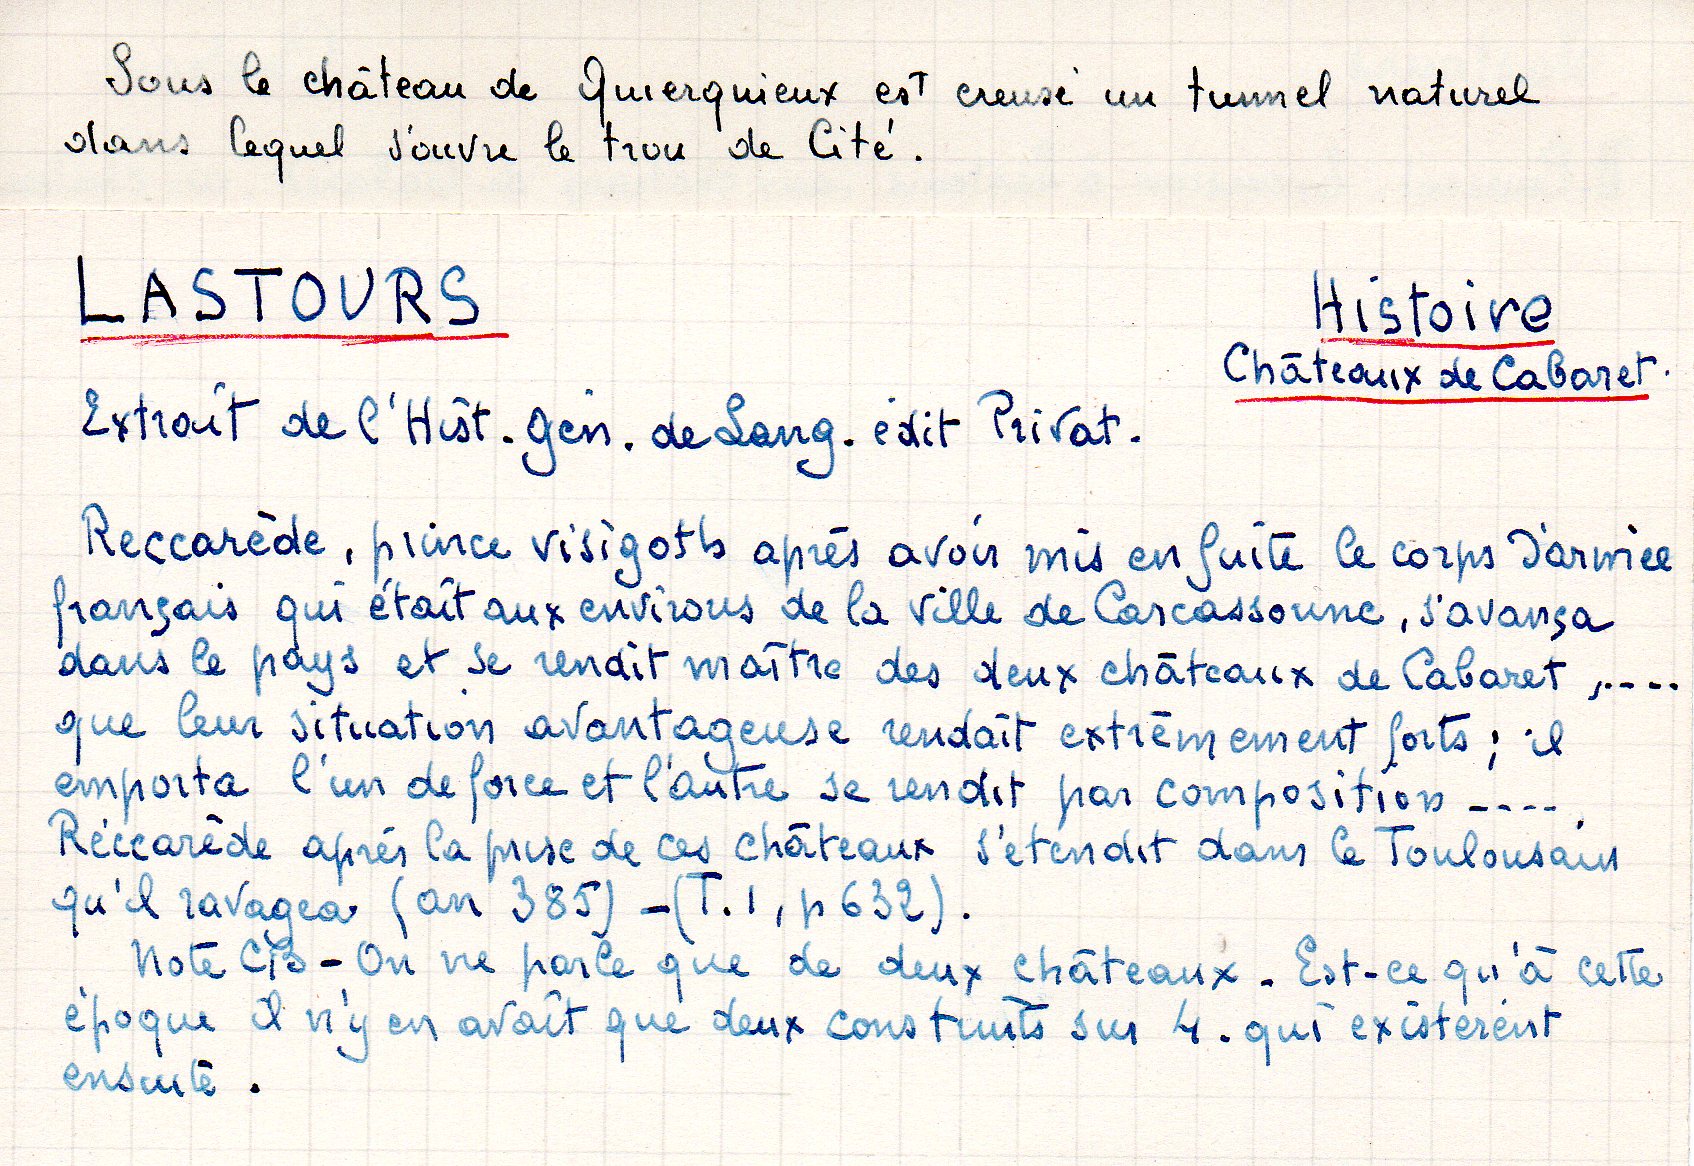 Sous le château de Quierquieux est creusé un tunnel naturel
dans lequel s'ouvre le trou de Cité.
LASTOURS
Histoire
Châteaux de Cabaret.
Extrait de l'Hist. Gén. de Lang. édit Privat.
Reccarède, prince visigoth après avoir mis en fuite le corps d'armée
français qui était aux environs de la ville de Carcassonne, s'avança
dans le pays et se rendit maître des deux châteaux de Cabaret ,....
que leur situation avantageuse rendait extrêmement forts ; il
emporta l'un de force et l'autre se rendit par composition ----.
Réccarède après la prise de ces châteaux s'étendit dans le Toulousain
qu'il ravagea (an 385) - (T.1, p 632).
Note - On ne parle que de deux châteaux. Est-ce qu'à cette
époque il n'y en avait que deux construits sur 4. qui existèrent
ensuite.